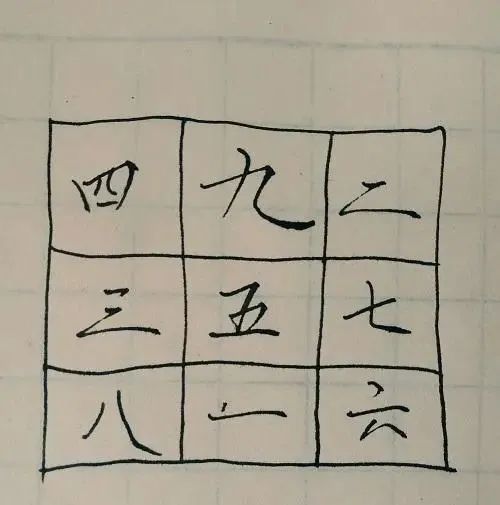 四 九 二
三 五 七
八 一 六